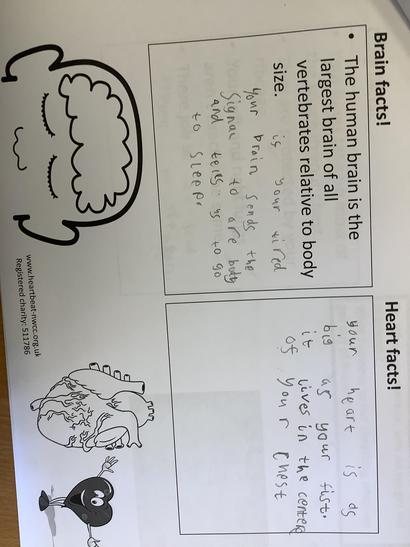 Brain facts!
• The human brain is the
largest brain of all
vertebrates relative to body
size.
is your tired
Your brain sends the
Signal to are body
and tells us to go
to sleep.
Heart facts!
your heart is as
big as your fist.
it lives in the center
of your chest
www.heartbeat-nwcc.org.uk
Registered charity: 511786